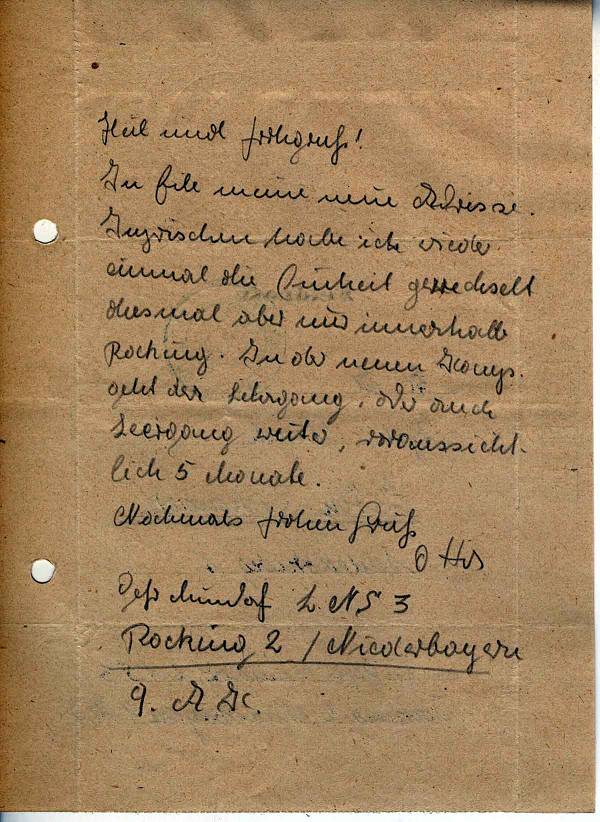 Heil und frohgruß!
In Eile meine neue Adresse.
Inzwischen habe ich wieder
einmal die Einheit gewechselt
diesmal aber nur innerhalb
Pocking. In der neuen Komp.
geht der Lehrgang, oder auch
Leergang weiter, voraussicht-
lich 5 Monate.
Nochmals frohen Gruß
L. N S 3
Pocking 2 / Niederbayern
9. A K.